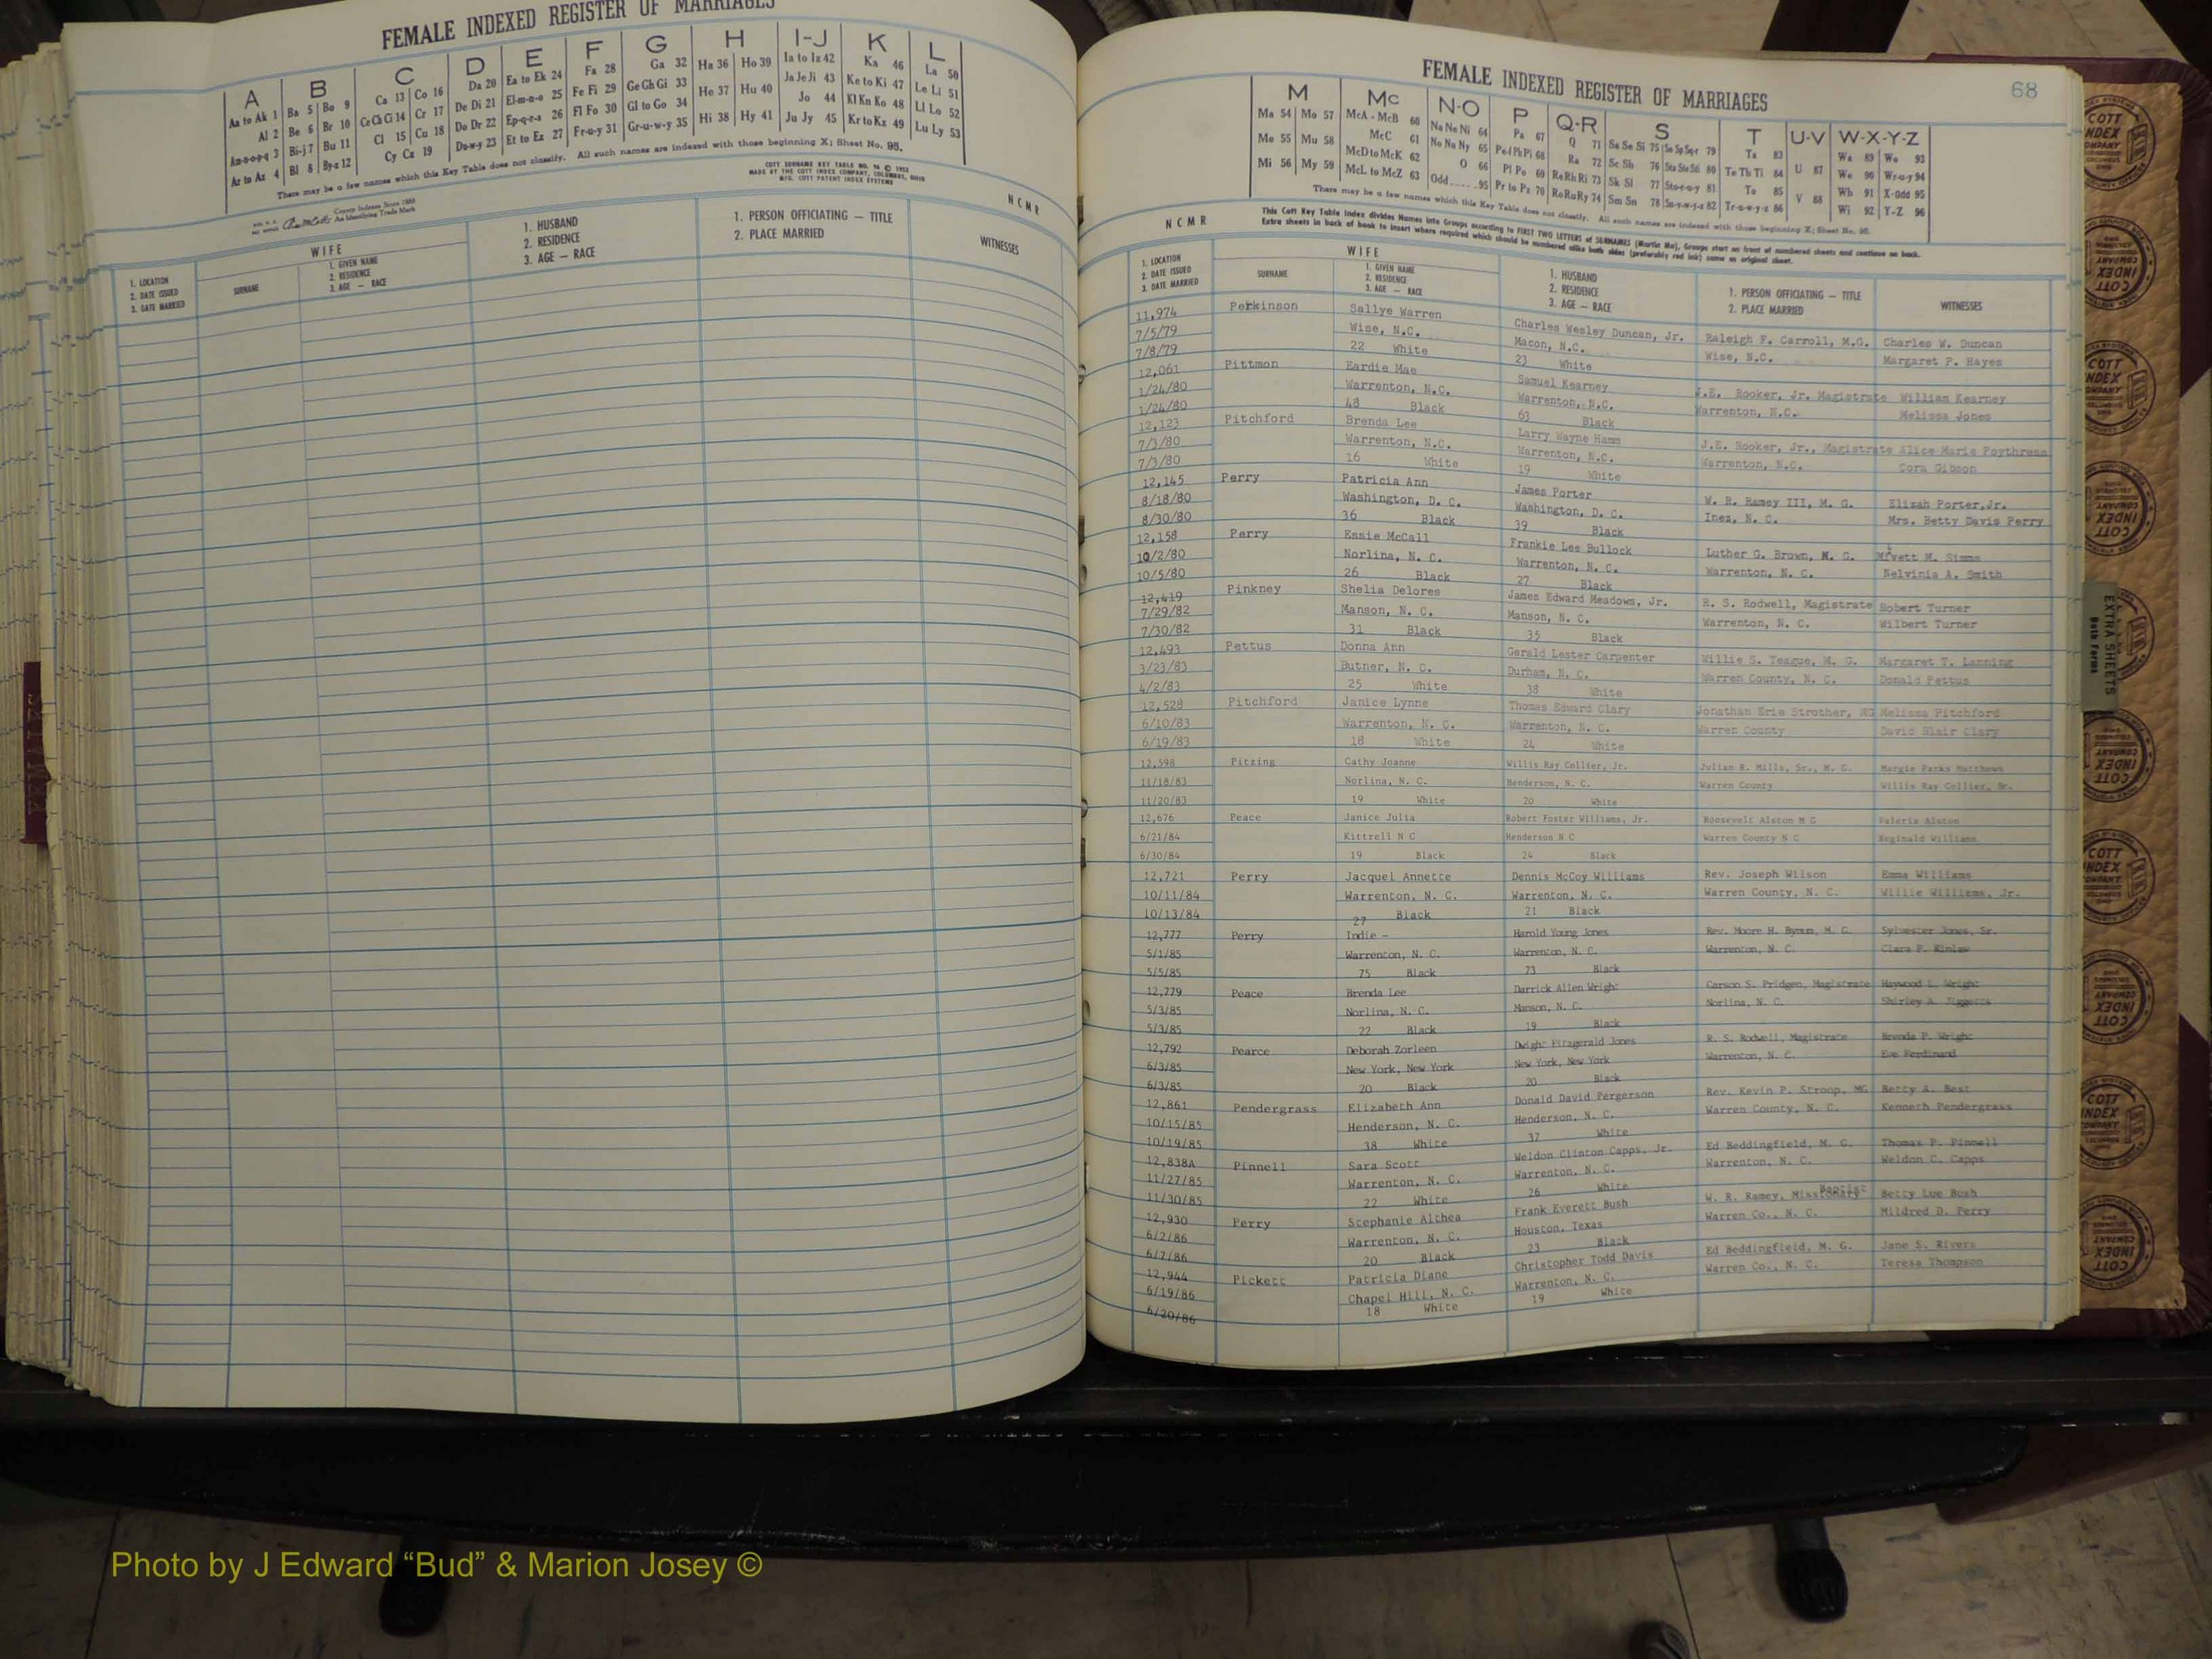 FEMALE INDEXED REGISTER OF MARRIAGES
A B C D E F G H I-J K L
Aa to Ak 1 Ba 5 Bo 9 Ca 13 Co 16 Da 20 Ea to Ek 24 Fa 28 Ga 32 Ha 36 Ho 39 Ia to Iz 42 Ka 46 La 50
Al 2 Be 6 Br 10 Ce Ch Ci 14 Cr 17 De Di 21 El-m-n-o 25 Fe Fi 29 Ge Gh Gi 33 He 37 Hu 40 Ja Je Ji 43 Ke to Ki 47 Le Li 51
An-o-p-q 3 Bi-j 7 Bu 11 Cl 15 Cu 18 Do Dr 22 Ep-q-r-s 26 Fl Fo 30 Gl to Go 34 Hi 38 Hy 41 Jo 44 Kl Kn Ko 48 Ll Lo 52
Ar to Az 4 Bl 8 By-z 12 Cy Cz 19 Du-w-y 23 Et to Ez 27 Fr-u-y 31 Gr-u-w-y 35 Ju Jy 45 Kr to Kz 49 Lu Ly 53
There may be a few names which this Key Table does not classify. All such names are indexed with those beginning X; Sheet No. 98.
COTT SURNAME KEY TABLE NO. 96 © 1952
MADE BY THE COTT INDEX COMPANY, COLUMBUS, OHIO
MFG. COTT PATENT INDEX SYSTEMS
County Indexes Since 1888
An Identifying Trade Mark
NCMR
WIFE
1. LOCATION
2. DATE ISSUED
3. DATE MARRIED
SURNAME
1. GIVEN NAME
2. RESIDENCE
3. AGE — RACE
1. HUSBAND
2. RESIDENCE
3. AGE — RACE
1. PERSON OFFICIATING — TITLE
2. PLACE MARRIED
WITNESSES
FEMALE INDEXED REGISTER OF MARRIAGES
68
M Mc N-O P Q-R S T U-V W-X-Y-Z
Ma 54 Mo 57 McA - McB 60 Na Ne Ni 64 Pa 67 Q 71 Sa Se Si 75 79 Ta 83 U 87 Wa 89 Wo 93
Me 55 Mu 58 McC 61 No Nu Ny 65 Pe-f Ph Pi 68 Ra 72 Sc Sh 76 80 Te Th Ti 84 V 88 We 90 Wr-u-y 94
Mi 56 My 59 McD to McK 62 O 66 Pl Po 69 Re Rh Ri 73 Sk Sl 77 81 To 85 Wh 91 X-Odd 95
McL to McZ 63 Odd 95 Pr to Pz 70 Ro Ru Ry 74 Sm Sn 78 82 Tr-u-w-y-z 86 Wi 92 Y-Z 96
There may be a few names which this Key Table does not classify. All such names are indexed with those beginning X; Sheet No. 98.
This Cott Key Table Index divides Names into Groups according to FIRST TWO LETTERS of SURNAMES (Martin Ma), Groups start on front of numbered sheets and continue on back.
Extra sheets in back of book to insert where required which should be numbered alike both sides (preferably red ink) same as original sheet.
NCMR
WIFE
1. LOCATION
2. DATE ISSUED
3. DATE MARRIED
SURNAME
1. GIVEN NAME
2. RESIDENCE
3. AGE — RACE
1. HUSBAND
2. RESIDENCE
3. AGE — RACE
1. PERSON OFFICIATING — TITLE
2. PLACE MARRIED
WITNESSES
11,974 Perkinson Sallye Warren Charles Wesley Duncan, Jr. Raleigh F. Carroll, M.G. Charles W. Duncan
7/5/79 Wise, N.C. Macon, N.C. Wise, N.C. Margaret P. Hayes
7/8/79 22 White 23 White
12,061 Pittmon Eardie Mae Samuel Kearney J.E. Rooker, Jr. Magistrate William Kearney
1/24/80 Warrenton, N.C. Warrenton, N.C. Warrenton, N.C. Melissa Jones
1/24/80 48 Black 63 Black
12,123 Pitchford Brenda Lee Larry Wayne Hamm J.E. Rooker, Jr., Magistrate Alice Marie Poythress
7/3/80 Warrenton, N.C. Warrenton, N.C. Warrenton, N.C. Cora Gibson
7/3/80 16 White 19 White
12,145 Perry Patricia Ann James Porter W. R. Ramey III, M. G. Elizah Porter,Jr.
8/18/80 Washington, D. C. Washington, D. C. Inez, N. C. Mrs. Betty Davis Perry
8/30/80 36 Black 39 Black
12,158 Perry Essie McCall Frankie Lee Bullock Luther G. Brown, M. G. M. Simms
10/2/80 Norlina, N. C. Warrenton, N. C. Warrenton, N. C. Nelvinia A. Smith
10/5/80 26 Black 27 Black
12,419 Pinkney Shelia Delores James Edward Meadows, Jr. R. S. Rodwell, Magistrate Robert Turner
7/29/82 Manson, N. C. Manson, N. C. Warrenton, N. C. Wilbert Turner
7/30/82 31 Black 35 Black
12,493 Pettus Donna Ann Gerald Lester Carpenter Willie S. Teague, M. G. Margaret T. Lanning
3/23/83 Butner, N. C. Durham, N. C. Warren County, N. C. Donald Pettus
4/2/83 25 White 38 White
12,528 Pitchford Janice Lynne Thomas Edward Clary Jonathan Eric Strother, MG Melissa Pitchford
6/10/83 Warrenton, N. C. Warrenton, N. C. Warren County David Blair Clary
6/19/83 18 White 24 White
12,598 Pitzing Cathy Joanne Willis Ray Collier, Jr. Julian R. Mills, Sr., M. G. Margie Parks Matthews
11/18/83 Norlina, N. C. Henderson, N. C. Warren County Willis Ray Collier, Sr.
11/20/83 19 White 20 White
12,676 Peace Janice Julia Robert Foster Williams, Jr. Roosevelt Alston M G Valeria Alston
6/21/84 Kittrell N C Henderson N C Warren County N C Reginald Williams
6/30/84 19 Black 24 Black
12,721 Perry Jacquel Annette Dennis McCoy Williams Rev. Joseph Wilson Emma Williams
10/11/84 Warrenton, N. C. Warrenton, N. C. Warren County, N. C. Willie Williams, Jr.
10/13/84 27 Black 21 Black
12,777 Perry Indie - Harold Young Jones Rev. Moore H. Bynum, M. G. Sylvester Jones, Sr.
5/1/85 Warrenton, N. C. Warrenton, N. C. Warrenton, N. C. Clara P. Kinlaw
5/5/85 75 Black 73 Black
12,779 Peace Brenda Lee Darrick Allen Wright Carson S. Pridgen, Magistrate Haywood L. Wright
5/3/85 Norlina, N. C. Manson, N. C. Norlina, N. C. Shirley A. Jiggetts
5/3/85 22 Black 19 Black
12,792 Pearce Deborah Zorleen Dwight Fitzgerald Jones R. S. Rodwell, Magistrate Brenda P. Wright
6/3/85 New York, New York New York, New York Warrenton, N. C. Eve Ferdinand
6/3/85 20 Black 20 Black
12,861 Pendergrass Elizabeth Ann Donald David Pergerson Rev. Kevin P. Stroop, MG Betty A. Best
10/15/85 Henderson, N. C. Henderson, N. C. Warren County, N. C. Kenneth Pendergrass
10/19/85 38 White 37 White
12,838A Pinnell Sara Scott Weldon Clinton Capps, Jr. Ed Beddingfield, M. G. Thomas P. Pinnell
11/27/85 Warrenton, N. C. Warrenton, N. C. Warrenton, N. C. Weldon C. Capps
11/30/85 22 White 26 White
12,930 Perry Stephanie Althea Frank Everett Bush W. R. Ramey, Missionary Baptist Betty Lue Bush
6/2/86 Warrenton, N. C. Houston, Texas Warren Co., N. C. Mildred D. Perry
6/7/86 20 Black 23 Black
12,944 Pickett Patricia Diane Christopher Todd Davis Ed Beddingfield, M. G. Jane S. Rivers
6/19/86 Chapel Hill, N. C. Warrenton, N. C. Warren Co., N. C. Teresa Thompson
6/20/86 18 White 19 White
EXTRA SHEETS
Both Forms
COTT
INDEX
COMPANY
Photo by J Edward “Bud” & Marion Josey ©